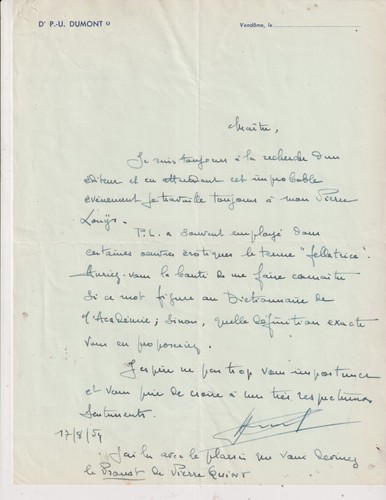 Dr P.-U. DUMONT
Vendôme, le
Maître,
Je suis toujours à la recherche d'un
éditeur et en attendant cet improbable
évènement je travaille toujours à mon Pierre
Louÿs.
P.L. a souvent employé dans
certaines œuvres érotiques le terme "fellatrice".
Auriez-vous la bonté de me faire connaître
si ce mot figure au Dictionnaire de
l'Académie; sinon, quelle définition exacte
vous en proposeriez.
J'espère ne pas trop vous importuner
et vous prie de croire à mes très respectueux
sentiments.
17/8/59
J'ai lu avec le plaisir que vous devinez
le Proust de Pierre QUINT